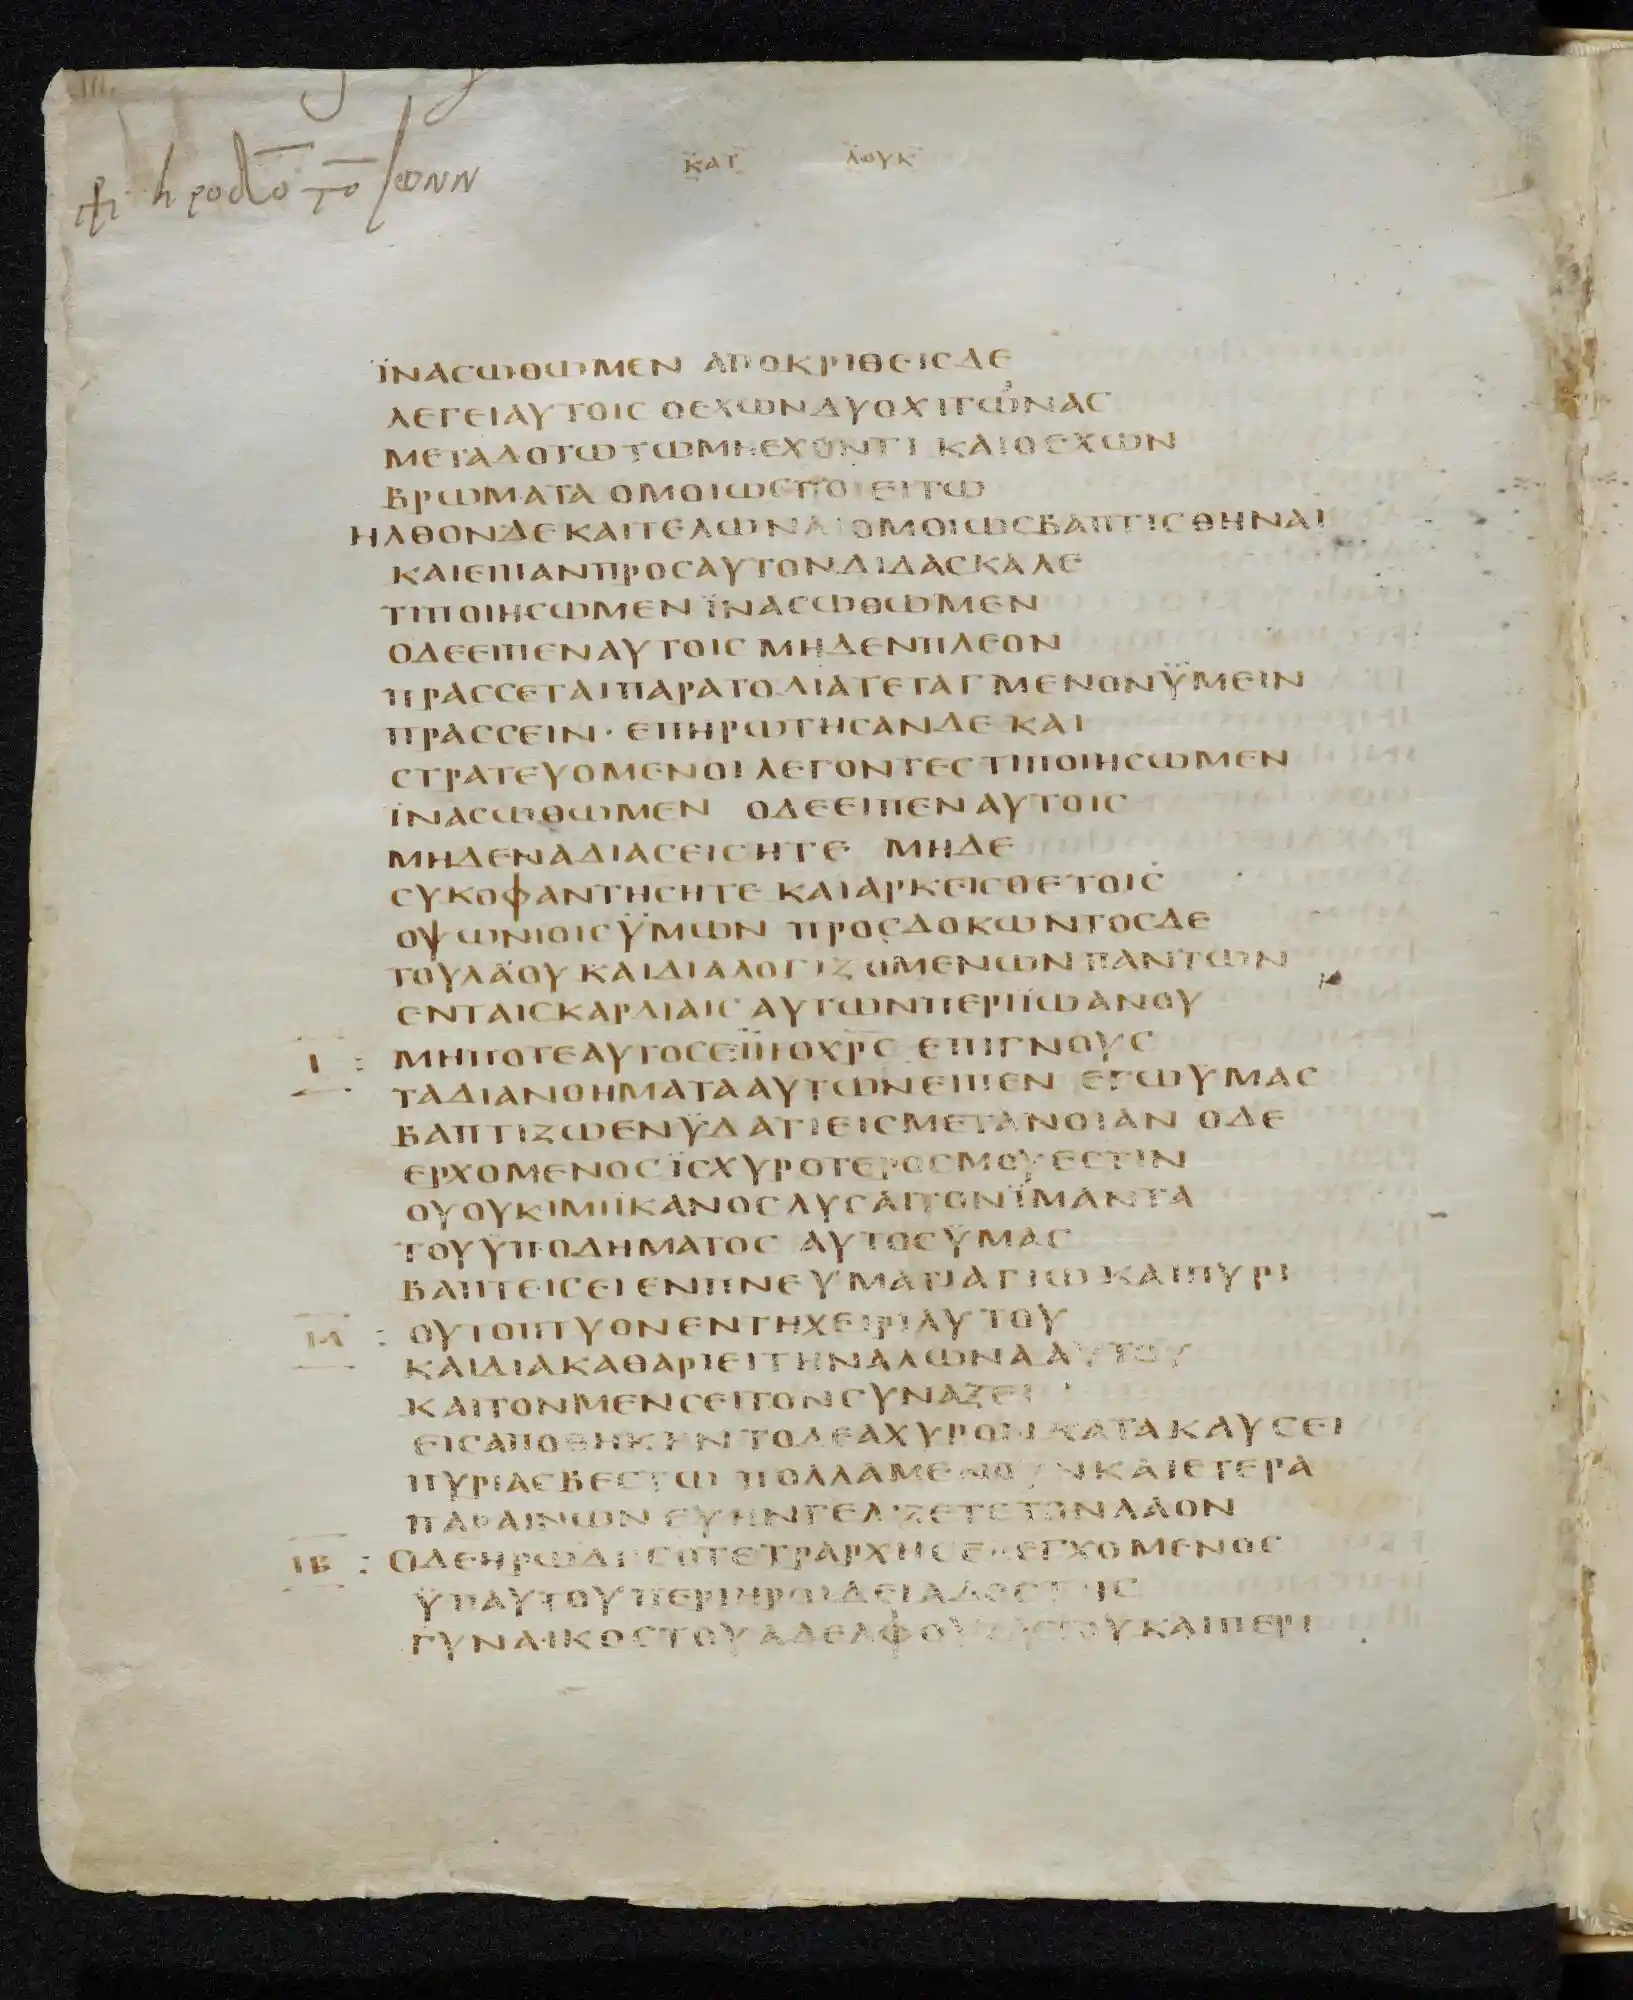 ΚΑΤ ΛΟΥΚ
ΪΝΑСΩΘΩΜΕΝ ΑΠΟΚΡΙΘΕΙСΔΕ
ΛΕΓΕΙΑΥΤΟΙС ΟΕΧΩΝΔΥΟΧΙΤΩΝΑС
ΜΕΤΑΔΟΤΩΤΩΜΗΕΧΟΝΤΙ ΚΑΙΟΕΧΩΝ
ΒΡΩΜΑΤΑ ΟΜΟΙΩСΠΟΙΕΙΤΩ
ΗΛΘΟΝΔΕΚΑΙΤΕΛΩΝΑΙΟΜΟΙΩСΒΑΠΤΙСΘΗΝΑΙ
ΚΑΙΕΙΠΑΝΠΡΟСΑΥΤΟΝΔΙΔΑСΚΑΛΕ
ΤΙΠΟΙΗСΩΜΕΝ ΪΝΑСΩΘΩΜΕΝ
ΟΔΕΕΙΠΕΝΑΥΤΟΙС ΜΗΔΕΝΠΛΕΟΝ
ΠΡΑССΕΤΑΙΠΑΡΑΤΟΔΙΑΤΕΤΑΓΜΕΝΟΝΫΜΕΙΝ
ΠΡΑССΕΙΝ· ΕΠΗΡΩΤΗСΑΝΔΕ ΚΑΙ
СΤΡΑΤΕΥΟΜΕΝΟΙ ΛΕΓΟΝΤΕСΤΙΠΟΙΗСΩΜΕΝ
ΪΝΑСΩΘΩΜΕΝ ΟΔΕΕΙΠΕΝΑΥΤΟΙС
ΜΗΔΕΝΑΔΙΑСΕΙСΗΤΕ ΜΗΔΕ
СΥΚΟΦΑΝΤΗСΗΤΕ ΚΑΙΑΡΚΕΙСΘΕΤΟΙС
ΟΨΩΝΙΟΙСΫΜΩΝ ΠΡΟСΔΟΚΩΝΤΟСΔΕ
ΤΟΥΛΑΟΥ ΚΑΙΔΙΑΛΟΓΙΖΟΜΕΝΩΝΠΑΝΤΩΝ
ΕΝΤΑΙСΚΑΡΔΙΑΙС ΑΥΤΩΝΠΕΡΙΪΩΑΝΟΥ
Ι : ΜΗΠΟΤΕΑΥΤΟСΕΪΗΟΧΡС ΕΠΙΓΝΟΥС
ΤΑΔΙΑΝΟΗΜΑΤΑΑΥΤΩΝΕΙΠΕΝ ΕΓΩΫΜΑС
ΒΑΠΤΙΖΩΕΝΫΔΑΤΙΕΙСΜΕΤΑΝΟΙΑΝ ΟΔΕ
ΕΡΧΟΜΕΝΟСΪСΧΥΡΟΤΕΡΟСΜΟΥΕСΤΙΝ
ΟΥΟΥΚΙΜΙΪΚΑΝΟСΛΥСΑΙΤΟΝΪΜΑΝΤΑ
ΤΟΥΫΠΟΔΗΜΑΤΟС ΑΥΤΟСΫΜΑС
ΒΑΠΤΕΙСΕΙΕΝΠΝΕΥΜΑΤΙΑΓΙΩΚΑΙΠΥΡΙ
ΙΑ : ΟΥΤΟΠΤΥΟΝΕΝΤΗΧΕΙΡΙΑΥΤΟΥ
ΚΑΙΔΙΑΚΑΘΑΡΙΕΙΤΗΝΑΛΩΝΑΑΥΤΟΥ
ΚΑΙΤΟΝΜΕΝСΕΙΤΟΝСΥΝΑΞΕΙ
ΕΙСΑΠΟΘΗΚΗΝΤΟΔΕΑΧΥΡΟΝΚΑΤΑΚΑΥСΕΙ
ΠΥΡΙΑСΒΕСΤΩ ΠΟΛΛΑΜΕΝΟΥΝΚΑΙΕΤΕΡΑ
ΠΑΡΑΙΝΩΝ ΕΥΗΝΓΕΛΙΖΕΤΕΤΟΝΛΑΟΝ
ΙΒ : ΟΔΕΗΡΩΔΗСΟΤΕΤΡΑΡΧΗСΕΛΕΓΧΟΜΕΝΟС
ΫΠΑΥΤΟΥΠΕΡΙΗΡΩΙΔΕΙΑΔΟСΤΗС
ΓΥΝΑΙΚΟСΤΟΥΑΔΕΛΦΟΥΑΥΤΟΥΚΑΙΠΕΡΙ